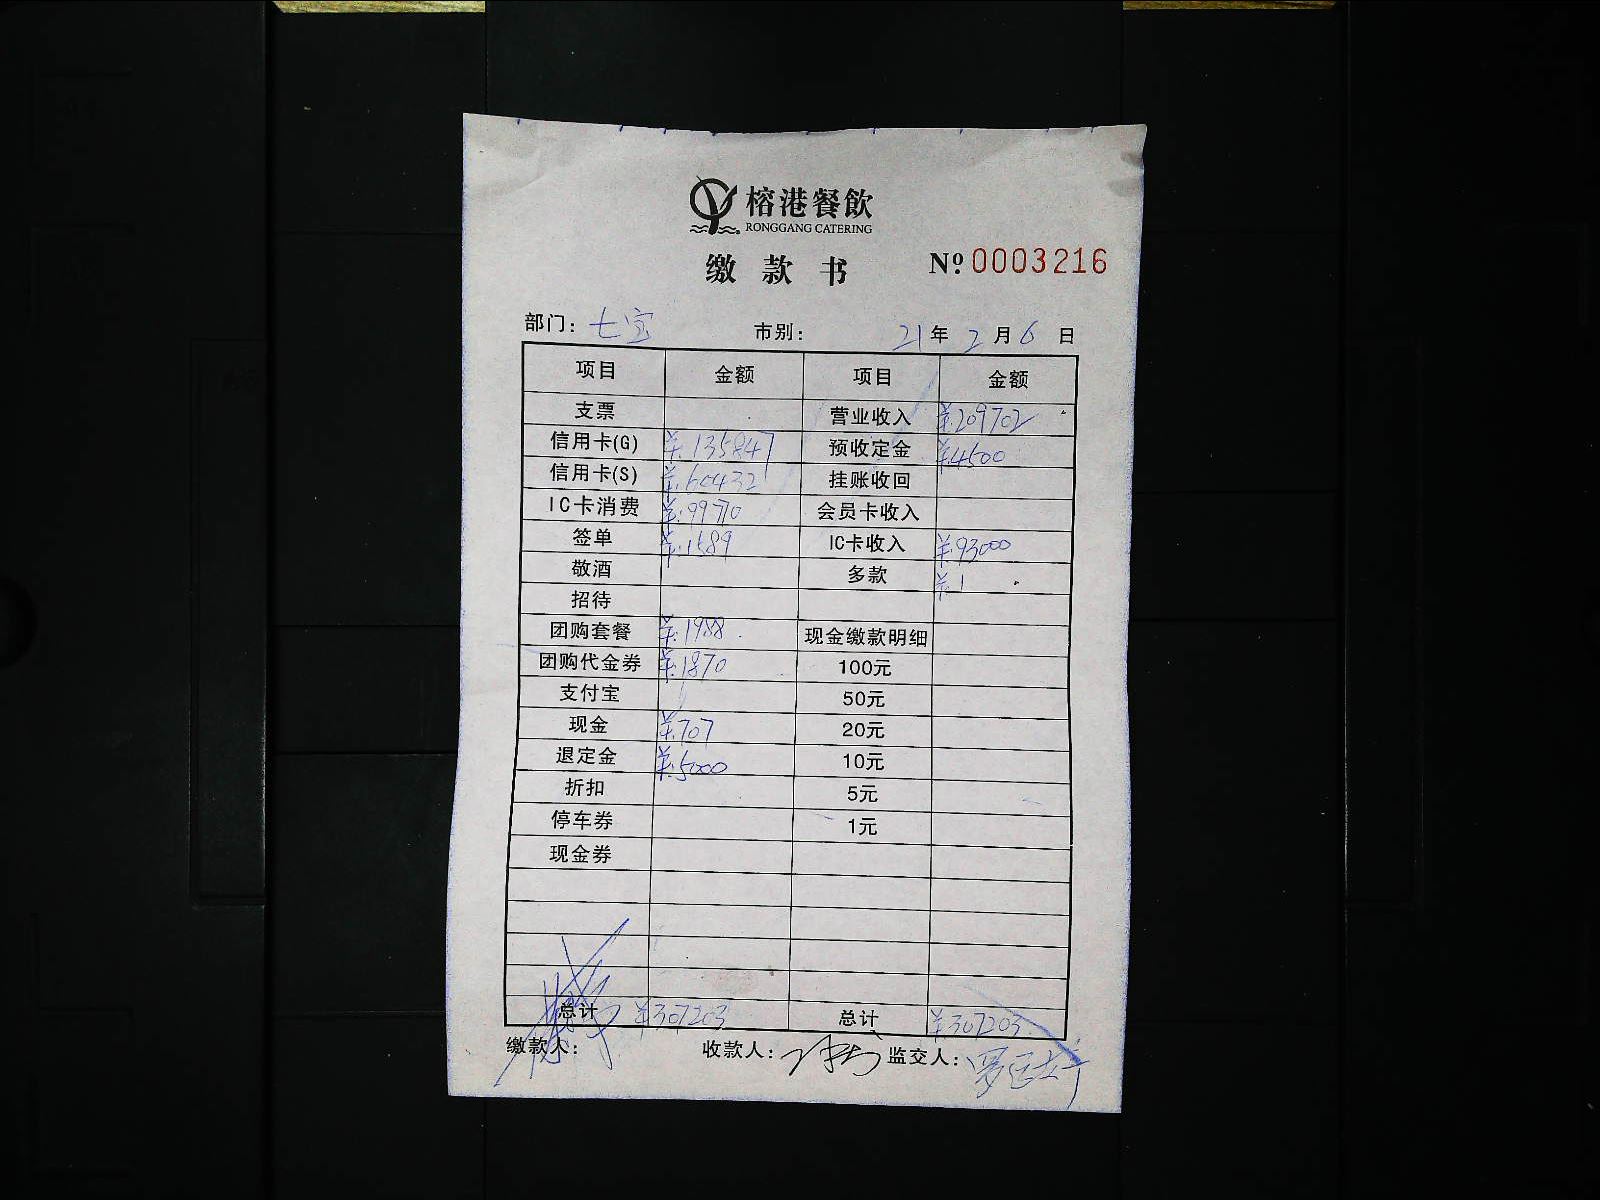 榕港餐飲
RONGGANG CATERING
缴款书 Nº 0003216
部门: 七宝 市别: 21年 2月 6日
项目 金额 项目 金额
支票 营业收入 ¥:209702
信用卡(G) ¥:135847 预收定金 ¥:4500
信用卡(S) ¥:60432 挂账收回
IC卡消费 ¥:99770 会员卡收入
签单 ¥:1589 IC卡收入 ¥:93000
敬酒 多款 ¥:1
招待
团购套餐 ¥:1988 现金缴款明细
团购代金券 ¥:1870 100元
支付宝 50元
现金 ¥:707 20元
退定金 ¥:5000 10元
折扣 5元
停车券 1元
现金券
总计 ¥307203 总计 ¥307203
缴款人: 收款人: 监交人: